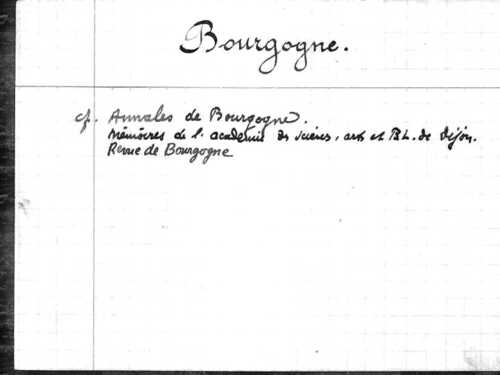 Bourgogne.
cf. Annales de Bourgogne.
Mémoires de l'académie des sciences, arts et B.L. de Dijon.
Revue de Bourgogne